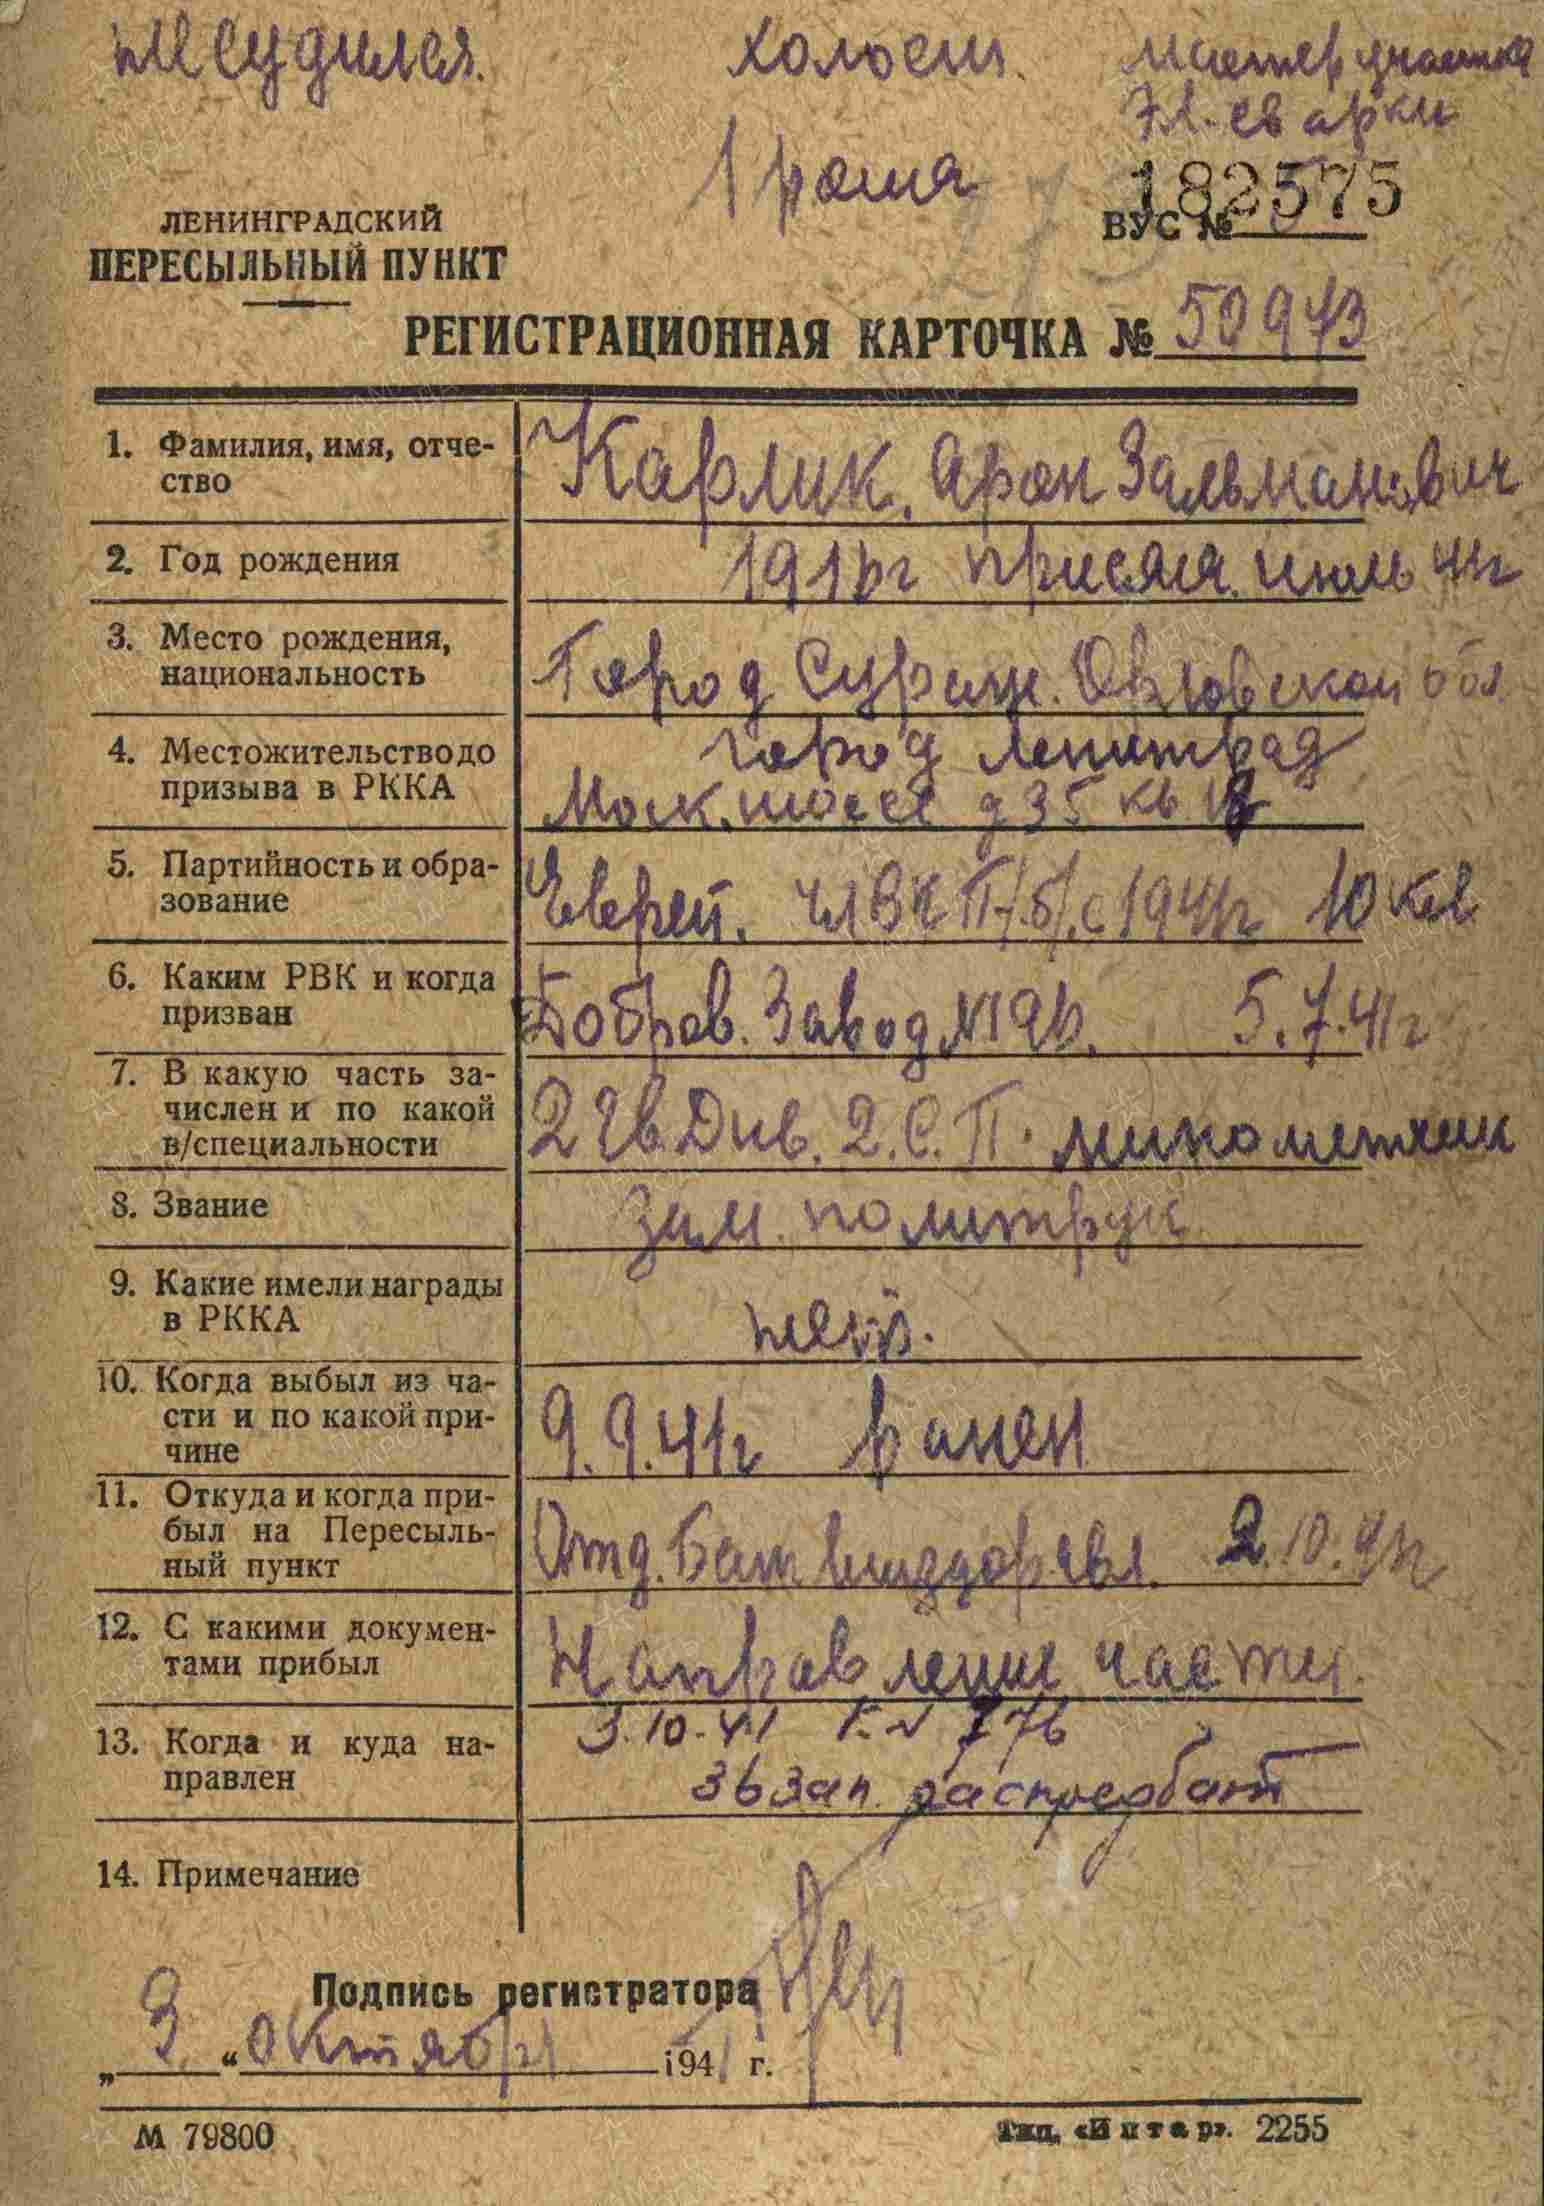 не судился. холост. мастер участка
эл. сварки
1 рота
182575
ЛЕНИНГРАДСКИЙ
ПЕРЕСЫЛЬНЫЙ ПУНКТ
ВУС №
РЕГИСТРАЦИОННАЯ КАРТОЧКА № 50973
1. Фамилия, имя, отче-
ство
Карлик. Арон Залманович
2. Год рождения
1916г присяга. июль 41г
3. Место рождения,
национальность
Город Сураж. Орловской обл
4. Местожительство до
призыва в РККА
город Ленинград
Моск. шоссе д 35 кв
5. Партийность и обра-
зование
Еврей. чл ВКП/б/. с 1941г 10 кл
6. Каким РВК и когда
призван
Завод №196. 5.7.41г
7. В какую часть за-
числен и по какой
в/специальности
2 Гв Див. 2. С. П. минометчик
8. Звание
зам. политрук
9. Какие имели награды
в РККА
нет.
10. Когда выбыл из ча-
сти и по какой при-
чине
9.9.41г ранен
11. Откуда и когда при-
был на Пересыль-
ный пункт
Отд. Бат выздоровл. 2.10.41г
12. С какими докумен-
тами прибыл
Направление части.
13. Когда и куда на-
правлен
3.10.41 К. № 776
36 зап. распредбат
14. Примечание
Подпись регистратора
„ 3 “ октября 1941 г.
М 79800
Тип. «Интар». 2255